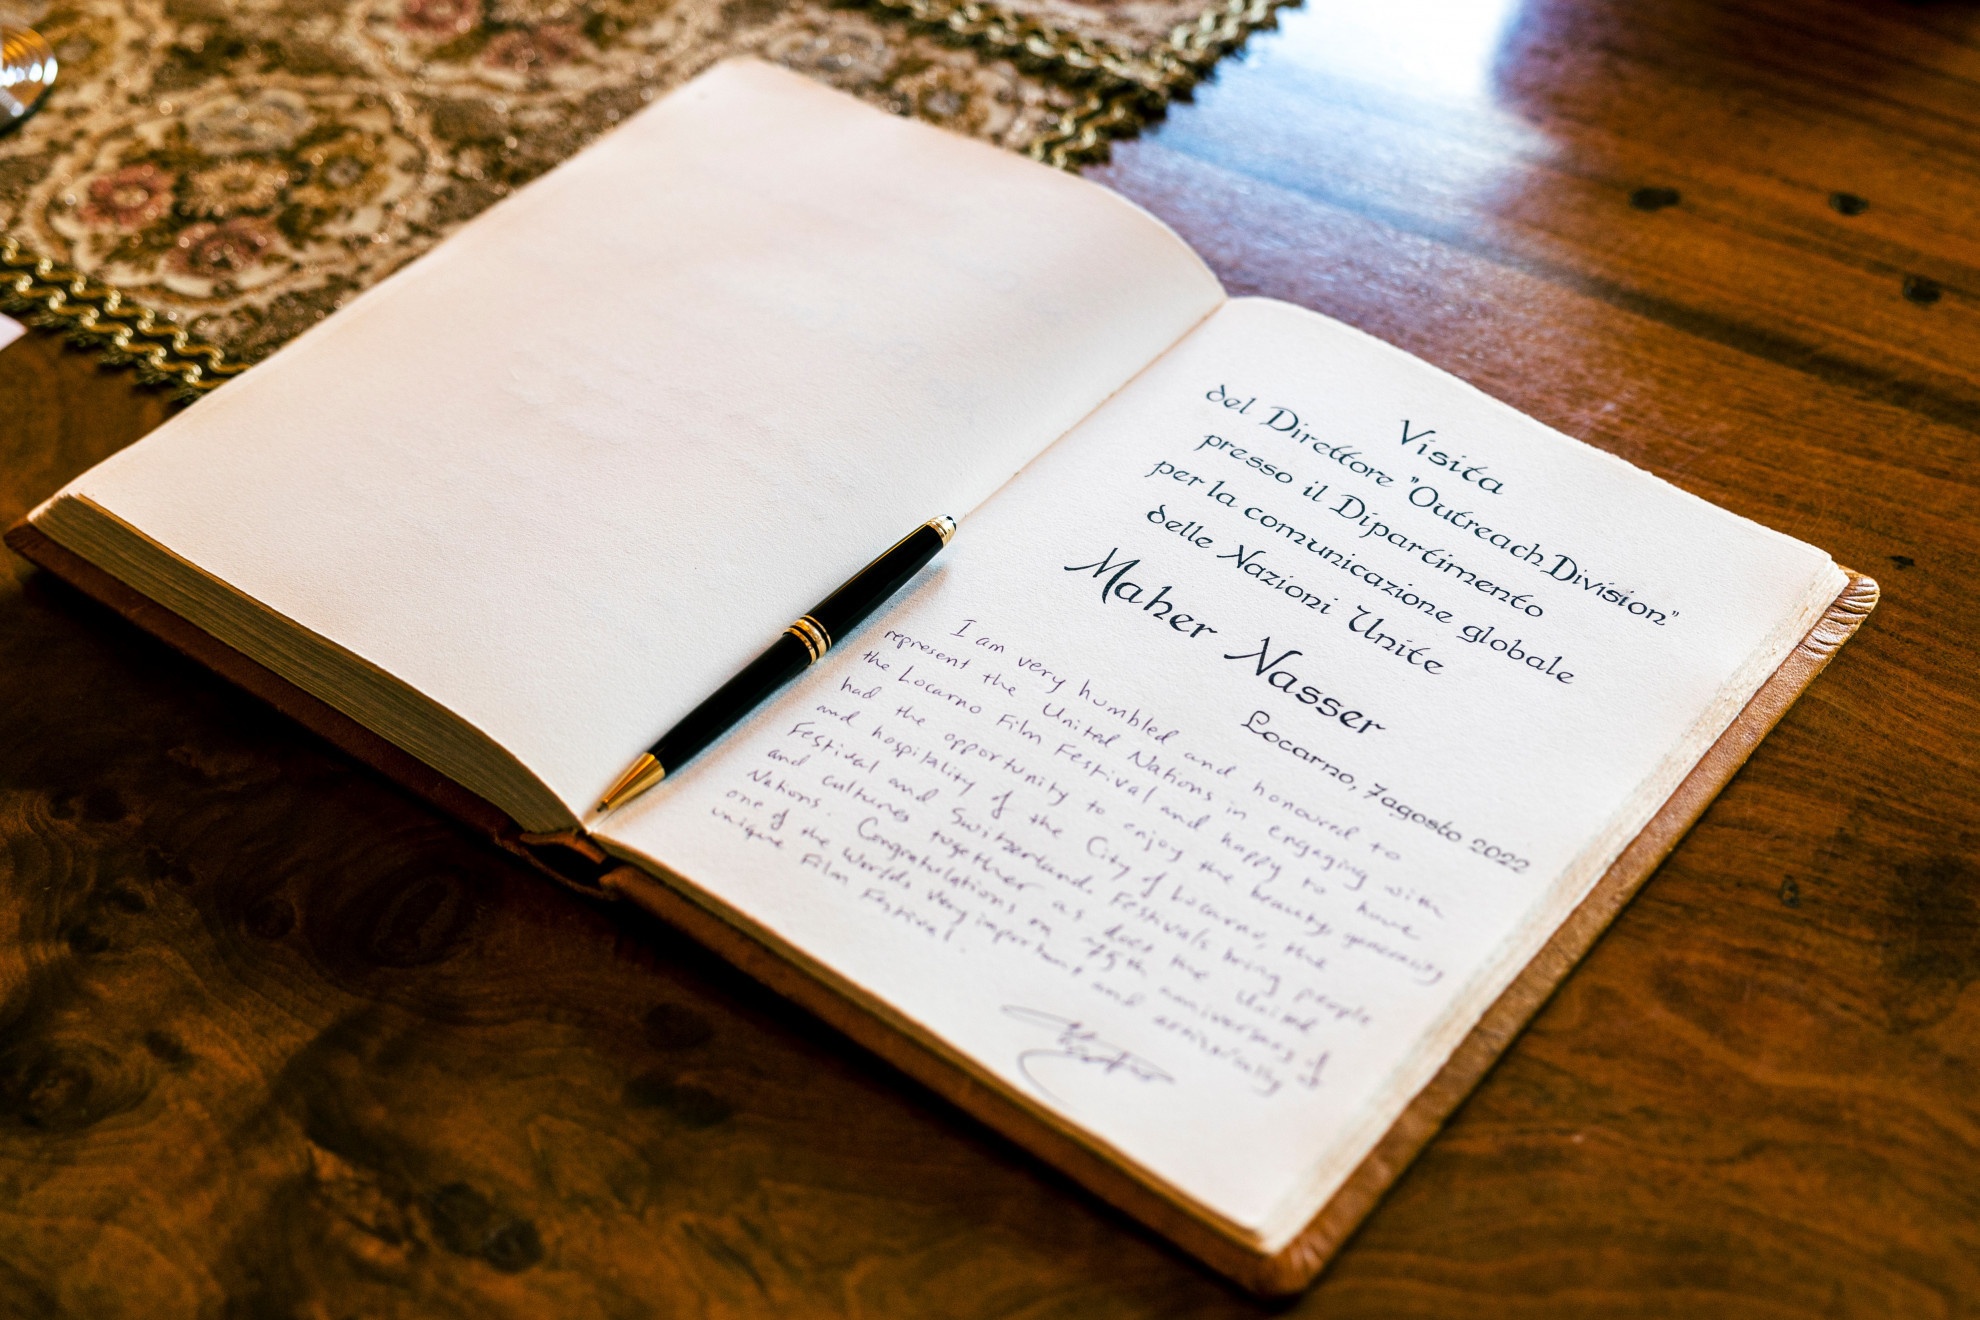 Visita
del Direttore "Outreach Division"
presso il Dipartimento
per la comunicazione globale
delle Nazioni Unite
Maher Nasser
Locarno, 7 agosto 2022
I am very humbled and honoured to
represent the United Nations in engaging with
the Locarno Film Festival and happy to have
had the opportunity to enjoy the beauty, generosity
and hospitality of the City of Locarno, the
Festival and Switzerland. Festivals bring people
and cultures together as does the United
Nations. Congratulations on 75th anniversary of
one of the Worlds very important and
unique Film Festival.